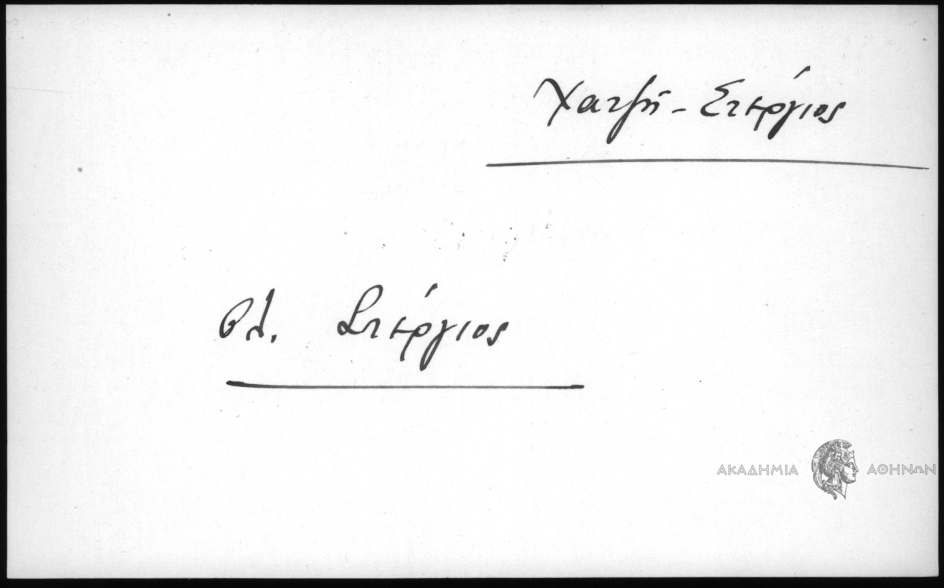 Χατζῆ - Στέργιος
βλ. Στέργιος
ΑΚΑΔΗΜΙΑ ΑΘΗΝΩΝ